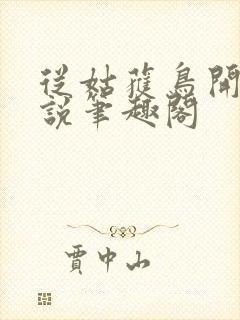 從姑蒦鳥開
說筆趣閣
賈中山